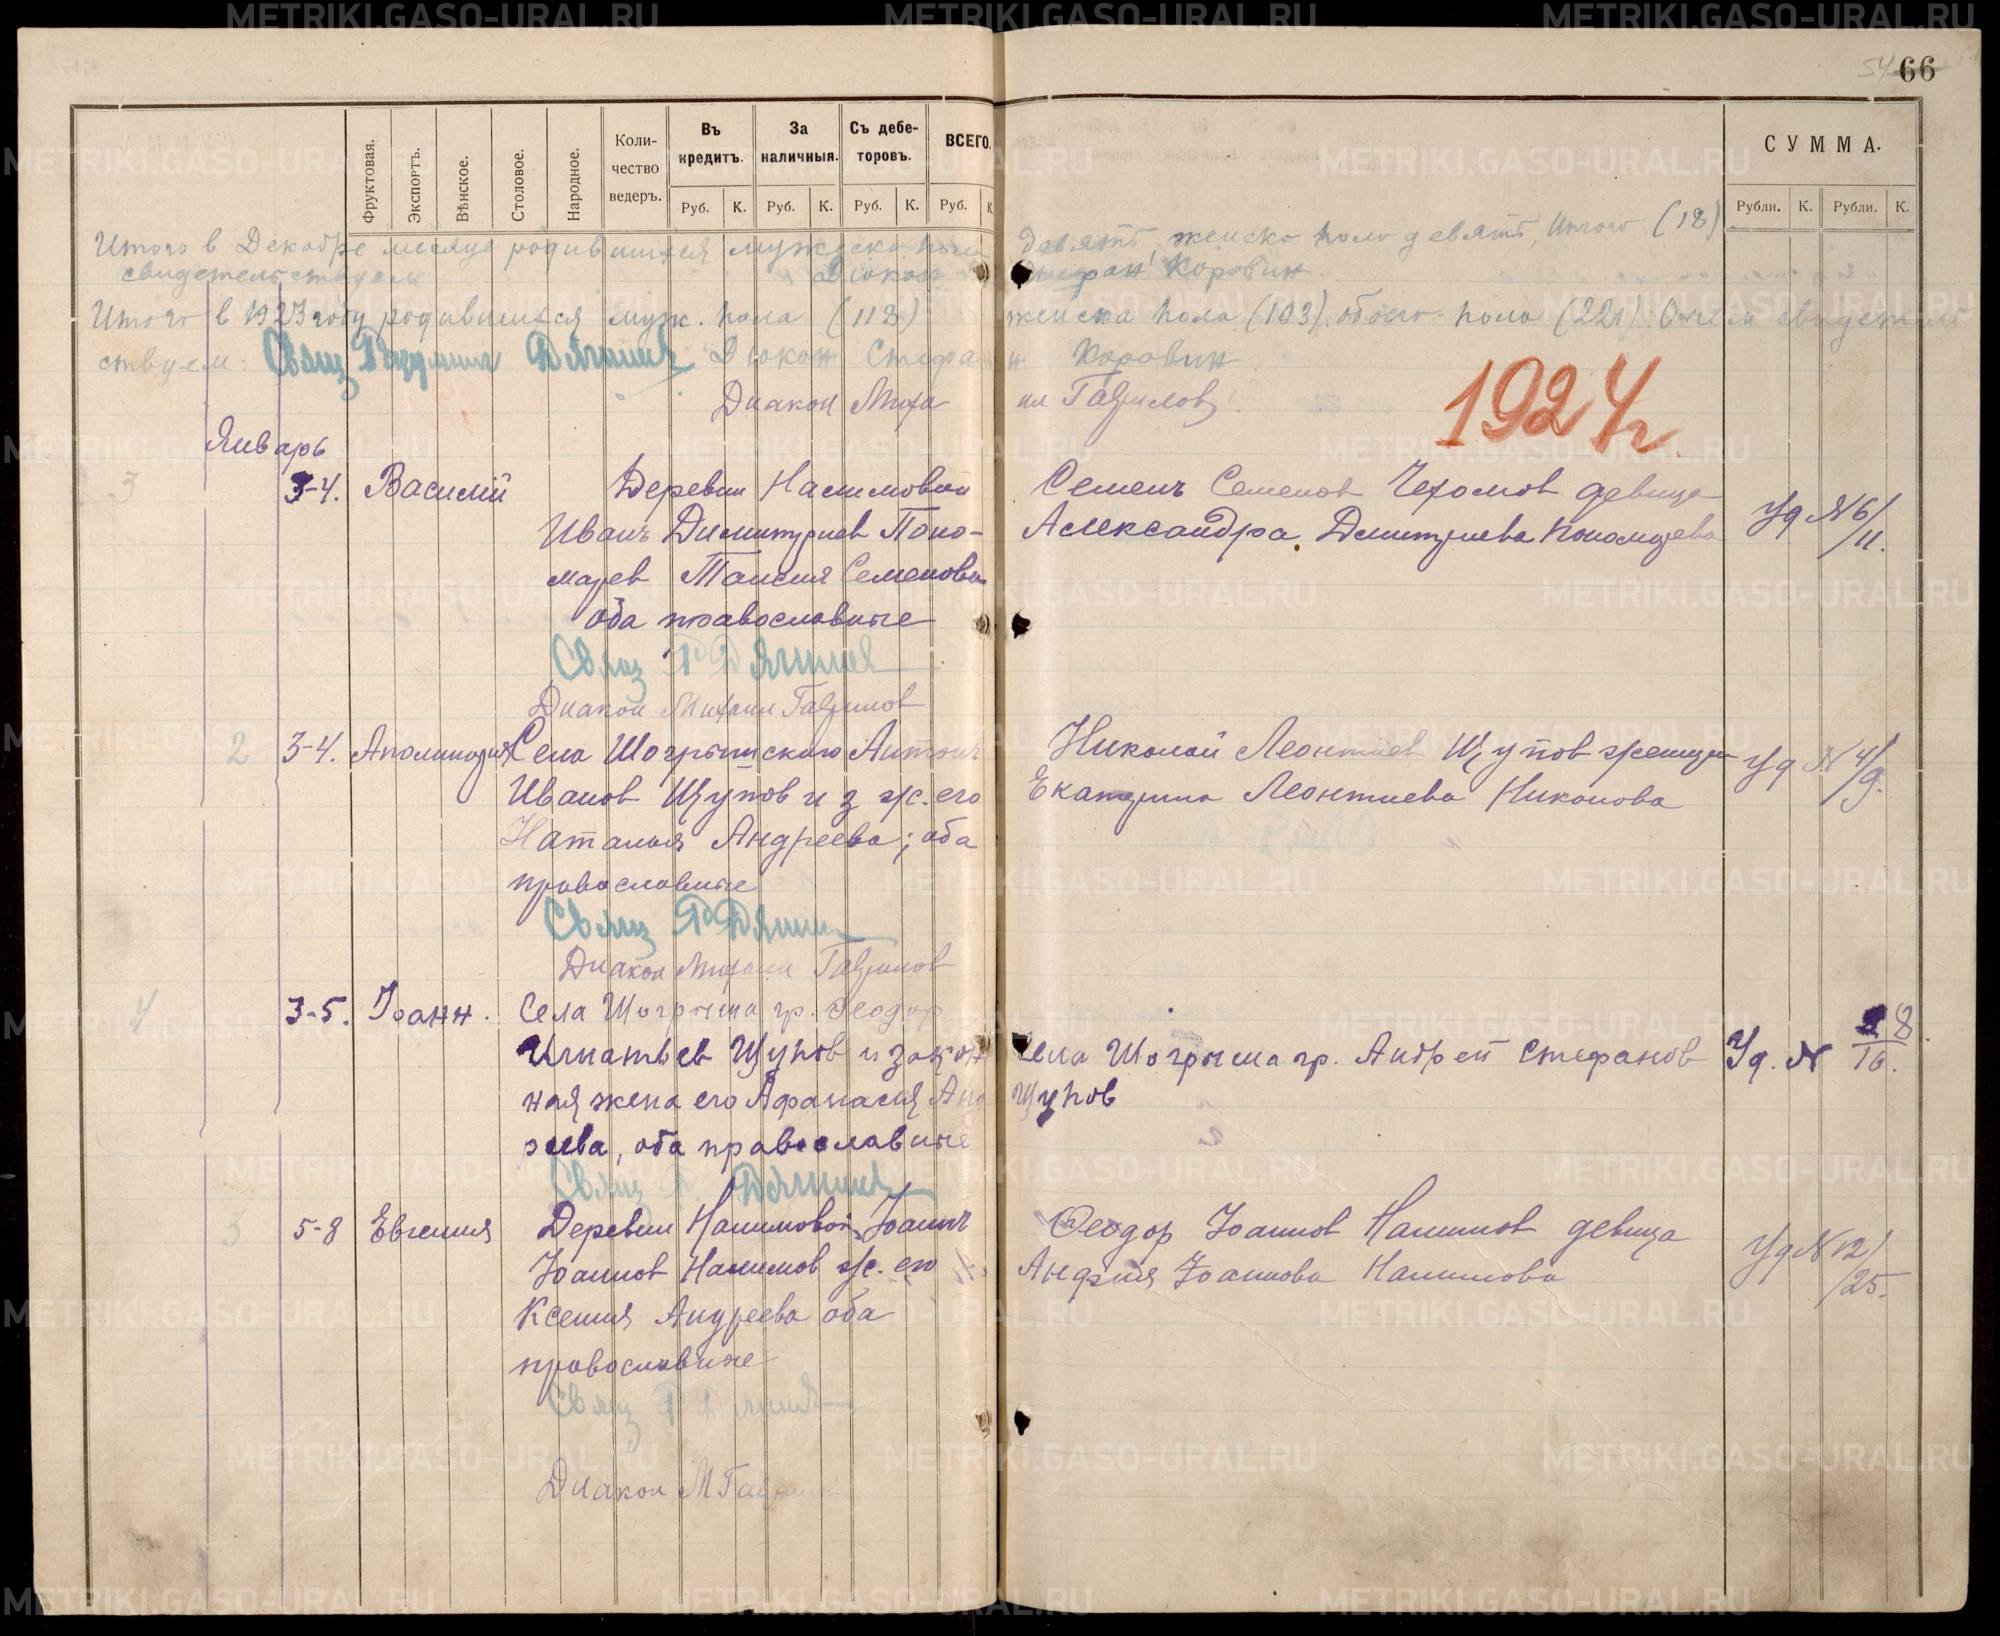 66
Фруктовая.
Экспортъ.
Вѣнское.
Столовое.
Народное.
Коли-
чество
ведеръ.
Въ
кредитъ.
За
наличныя.
Съ дебе-
торовъ.
ВСЕГО.
СУММА.
Руб. К. Руб. К. Руб. К. Руб. К
Рубли. К. Рубли. К.
Итого в Декабре месяце родившихся мужеско пола девять, женско пола девять, Итого (18)
свидетельствуем Диакон Стефан Коровин
Итого в 1923 году родившихся муж. пола (118) женска пола (103) обоего пола (221) О чем свидетель
ствуем: Свящ Дягилев Диакон Стефан Коровин
Диакон Михаил Гаврилов
1924 г
Январь
3 3-4. Василий
Деревни Налимовой
Иванъ Димитриев Поно-
марев Таисия Семенова
оба православные
Свящ Дягилев
Диакон Михаил Гаврилов
Семенъ Семенов девица
Александра Дмитриева Пономарева
Уд № 6/11.
2 3-4. Аполинария
Села Шогрышского Антонъ
Иванов Щупов и з ж. его
Наталья Андреева; оба
православные
Свящ Дягилев
Диакон Михаил Гаврилов
Николай Леонтиев Щупов
Екатерина Леонтиева Никонова
Уд № 4/9.
4 3-5. Иоанн.
Села Шогрыша гр. Феодор
Игнатьев Щупов и закон
ная жена его Афанасия Анд
реева, оба православные
Свящ Дягилев
Села Шогрыша гр. Андрей Стефанов
Щупов
Уд. № 8/16.
3 5-8 Евгения
Деревни Налимовой Иоаннъ
Иоаннов Налимов ж. его
Ксения Андреева оба
православные
Свящ Дягилев
Диакон М Гаврилов
Феодор Иоаннов Налимов девица
Иоаннова Налимова
Уд № 12/25.
METRIKI.GASO-URAL.RU